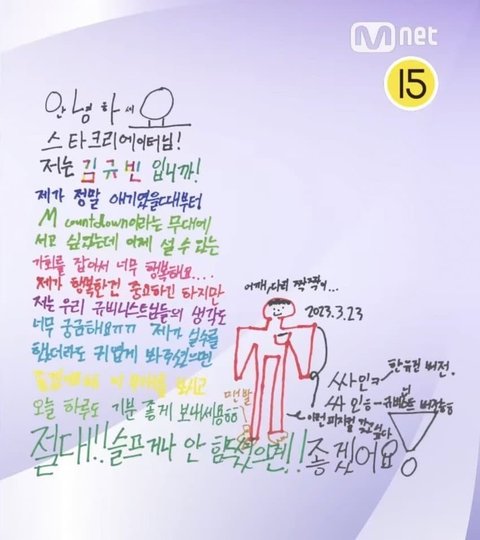 Mnet
15
안녕하세요
스타크리에이터님!
저는 김규빈 입니까!
제가 정말 애기였을때부터
M countdown이라는 무대에
서고 싶었는데 이제 설 수 있는
기회를 잡아서 너무 행복해요....
제가 행복한건 중요하긴 하지만
저는 우리 규비니스트님들의 생각도
너무 궁금해요ㄲㄲ 제가 실수를
했더라도 귀엽게 봐주셨으면
오늘 하루도 기분 좋게 보내세용ㅎㅎ
절대!! 슬프거나 안 했으면!! 좋겠어요!
어깨, 다리 짝짝이...
2023.3.23
맨발
싸인ㅋ 한유진 버전.
싸인ㅎ 규비스트 버전ㅎㅎ
이런 피지컬 갖고싶다